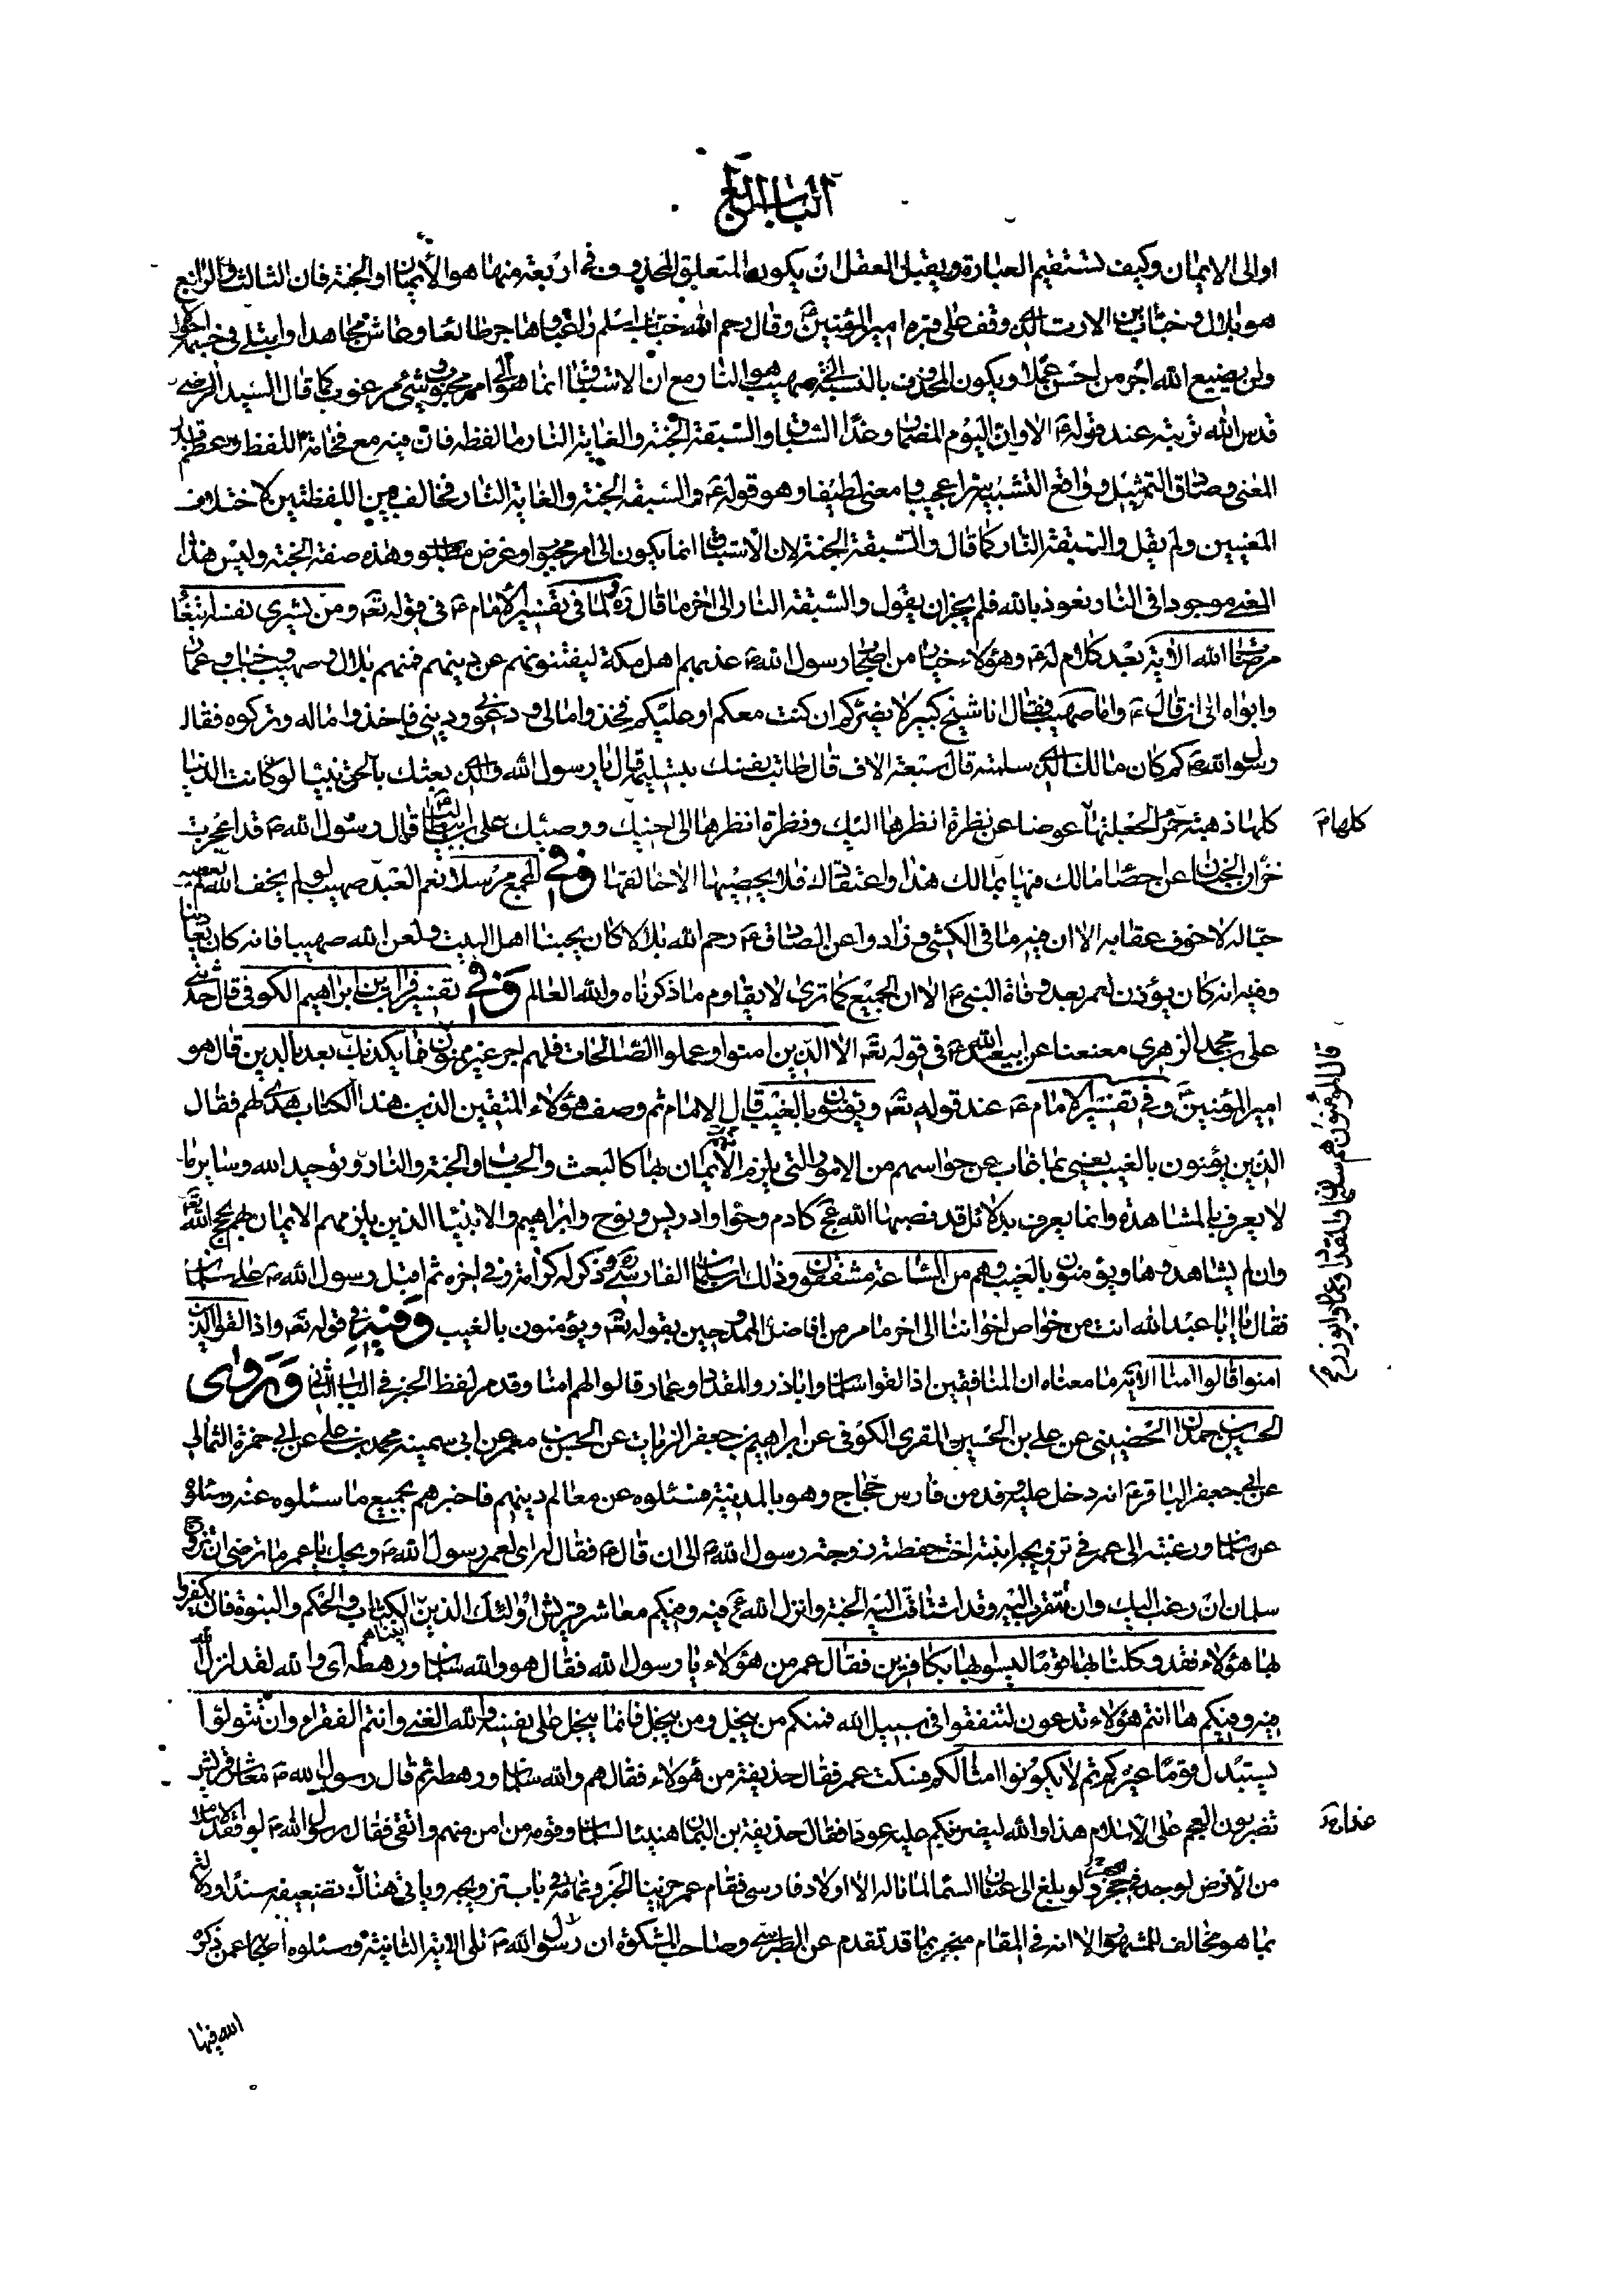 الباب الرابع
او الى الايمان وكيف تستقيم العبارة ويقبل العقل ان يكون المتعلق المحذوف في اربعة منها هو الايمان او الجنة فان الثالث والرابع
هو بلال وخباب بن الارت الذي وقف على قبره امير المؤمنين ع وقال رحم الله خبابا اسلم راغبا وهاجر طائعا وعاش مجاهدا وابتلى في جسمه احوالا
ولن يضيع الله اجر من احسن عملا ويكون المحذوف بالنسبة الى صهيب هو النار مع ان الاستباق انما هو الى امر محبوب وشيء مرغوب كما قال السيد الرضي
قدس الله تربته عند قوله ع الا وان اليوم المضمار وغدا السباق والسبقة الجنة والغاية النار ما لفظه فان فيه مع فخامة اللفظ وعظم قدر
المعنى وصادق التمثيل وواقع التشبيه سرا عجيبا ومعنى لطيفا وهو قوله ع والسبقة الجنة والغاية النار فخالف بين اللفظتين لاختلاف
المعنيين ولم يقل والسبقة النار كما قال والسبقة الجنة لان الاستباق انما يكون الى امر محبوب وغرض مطلوب وهذه صفة الجنة وليس هذا
المعنى موجودا في النار نعوذ بالله فلم يجز ان يقول والسبقة النار الى اخر ما قال ره ولما في تفسير الامام ع في قوله تع ومن يشري نفسه ابتغاء
مرضات الله الاية بعد كلام له ع وهؤلاء خيار من اصحاب رسول الله ص عذبهم اهل مكة ليفتنوهم عن دينهم فمنهم بلال وصهيب وخباب وعمار
وابواه الى ان قال ع واما صهيب فقال انا شيخ كبير لا يضركم ان كنت معكم او عليكم فخذوا مالي ودعوني وديني فاخذوا ماله وتركوه فقال
رسول الله ص كم كان مالك الذي سلمته قال سبعة الاف قال طابت نفسك بتسليمه قال يا رسول الله والذي بعثك بالحق نبيا لو كانت الدنيا
كلها ذهبة حمراء لجعلتها عوضا عن نظرة انظرها اليك ونظرة انظرها الى اخيك ووصيك علي بن ابي طالب ع فقال رسول الله ص قد اعجزت
كلها م
خزان الجنان عن احصاء مالك فيها بمالك هذا واعتقادك فلا يحصيها الا خالقها وفي المجمع مرسلا نعم العبد صهيب لو لم يخف الله لم يعصه
حياله لا خوف عقابه الا ان فيه ما في الكشي وزادوا عن الصادق ع رحم الله بلالا كان يحبنا اهل البيت ولعن الله صهيبا فانه كان يعادينا
وفيه انه كان يؤذن لعمر بعد وفاة النبي ص الا ان الجميع كما ترى لا يقاوم ما ذكرناه والله العالم وفي تفسير فرات بن ابراهيم الكوفي قال حدثني
علي بن محمد الزهري معنعنا عن ابي عبد الله ع في قوله تع الا الذين امنوا وعملوا الصالحات فلهم اجر غير ممنون فما يكذبك بعد بالدين قال هو
امير المؤمنين ع وفي تفسير الامام ع عند قوله تع ويؤمنون بالغيب قال الامام ثم وصف هؤلاء المتقين الذين هذا الكتاب هدى لهم فقال
الذين يؤمنون بالغيب يعني بما غاب عن حواسهم من الامور التي يلزمهم الايمان بها كالبعث والحساب والجنة والنار وتوحيد الله وساير ما
لا يعرف بالمشاهدة وانما يعرف بدلائل قد نصبها الله عج كادم وحوا وادريس ونوح وابراهيم والانبيا الذين يلزمهم الايمان بهم بحجج الله تع
وان لم يشاهدوها ويؤمنون بالغيب وهم من الساعة مشفقون وذلك ان سلمان الفارسي ره وذكر له كرامة وفي اخره ثم اقبل رسول الله ص على سلمان
فقال يا ابا عبد الله انت من خواص اخواننا الى اخر ما مر من افاضل الممدوحين بقوله تع ويؤمنون بالغيب وفيه في قوله تع واذا لقوا الذين
امنوا قالوا امنا الاية ما معناه ان المنافقين اذا لقوا سلمان وابا ذر والمقداد وعمار قالوا لهم امنا وقد مر لفظ الخبر في الباب الثاني وروى
قال المؤمنون هم سلمان والمقداد وعمار وابو ذر
الحسين بن حمدان الحضيني عن علي بن الحسين المقري الكوفي عن ابراهيم بن جعفر الزيات عن الحسن بن معمر عن ابي سمينة محمد بن علي عن ابي حمزة الثمالي
عن ابي جعفر الباقر ع انه دخل عليه وفد من فارس حجاج وهو بالمدينة فسئلوه عن معالم دينهم فاخبرهم بجميع ما سئلوه عنه وسئلوه
عن سلمان ورغبته الى عمر في تزويجه ابنته اخت حفصة زوجة رسول الله ص الى ان قال ع فقال لعمر رسول الله ص ويحك يا عمر ما ترضى ان تزوج
سلمان ان رغب اليك وان تتقرب اليه وقد اشتاقت اليه الجنة وانزل الله عج فيه وفيكم معاشر قريش اولئك الذين اتيناهم الكتاب والحكم والنبوة فان يكفر
بها هؤلاء فقد وكلنا بها قوما ليسوا بها بكافرين فقال عمر من هؤلاء يا رسول الله فقال هو والله سلمان ورهطه اي والله لقد انزل الله
فيه وفيكم ها انتم هؤلاء تدعون لتنفقوا في سبيل الله فمنكم من يبخل ومن يبخل فانما يبخل على نفسه والله الغني وانتم الفقراء وان تتولوا
يستبدل قوما غيركم ثم لا يكونوا امثالكم فسكت عمر فقال حذيفة من هؤلاء فقال هم والله سلمان ورهطه ثم قال رسول الله ص معاشر قريش
تضربون العجم على الاسلام هذا والله ليضربنكم عليه عودا فقال حذيفة بن اليمان هنيئا لسلمان وقومه من امن منهم واتقى فقال رسول الله ص لو فقد الاسلام
من الارض لوجد في لو بلغ الى عنان السماء لما ناله الا اولاد فارس فقام عمر حزينا الخبر وتمامه في باب تزويجه وياتي هناك تضعيفه سندا
بما هو مخالف للمشهور الا انه في المقام منجبر بما قد تقدم عن الطبرسي وصاحب المشكوة ان رسول الله ص تلى الاية الثانية وسئلوه اصحابه عمن ذكر
الله فيها